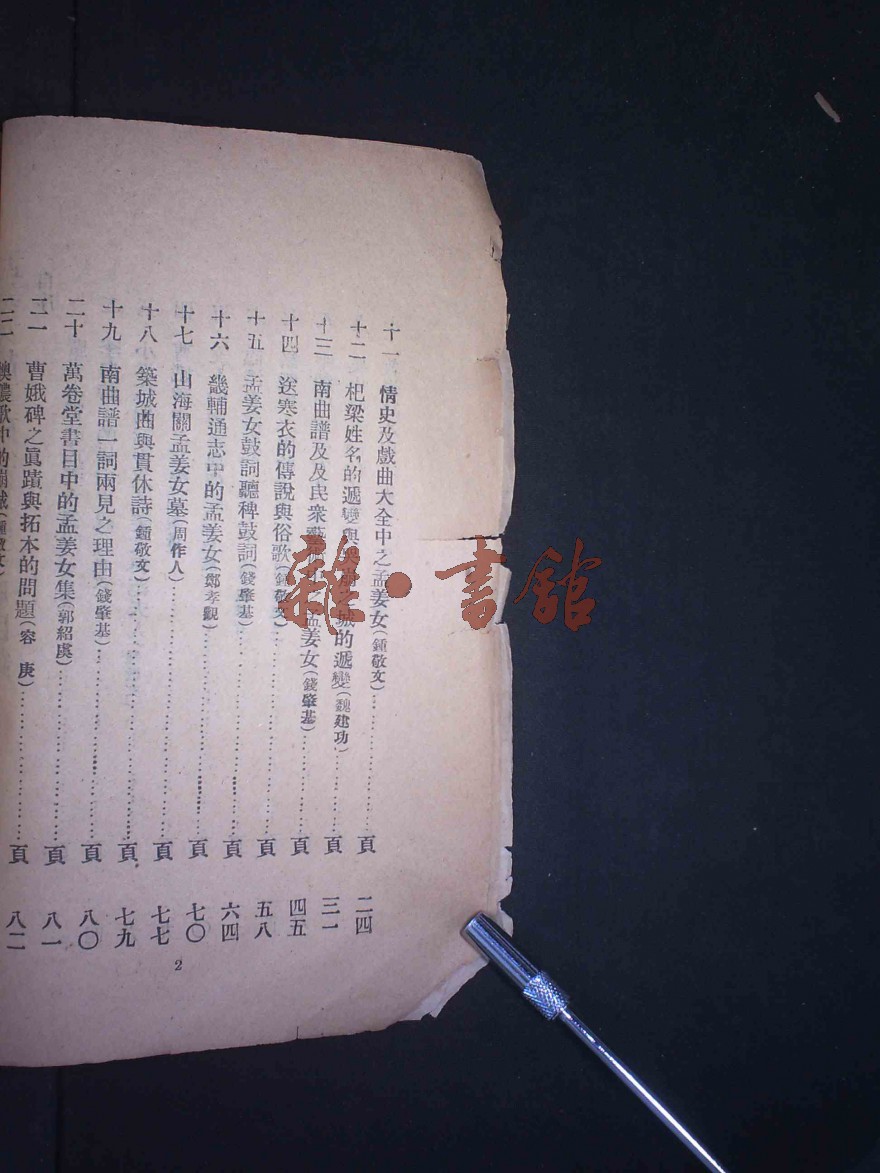 十一 情史及戲曲大全中之孟姜女(鍾敬文)……頁 二四
十二 杞梁姓名的遞變與 城的遞變(魏建功)……頁 三一
十三 南曲譜及及民衆 孟姜女(錢肇基)……頁 四五
十四 送寒衣的傳說與俗歌(鍾敬文)……頁 五八
十五 孟姜女鼓詞聽稗鼓詞(錢肇基)……頁 六四
十六 畿輔通志中的孟姜女(鄭孝觀)……頁 七〇
十七 山海關孟姜女墓(周作人)……頁 七七
十八 築城曲與貫休詩(鍾敬文)……頁 七九
十九 南曲譜一詞兩見之理由(錢肇基)……頁 八〇
二十 萬卷堂書目中的孟姜女集(郭紹虞)……頁 八一
二一 曹娥碑之眞蹟與拓本的問題(容 庚)……頁 八二
二二 歌中的崩城(鍾敬文)
2
雜·書舘